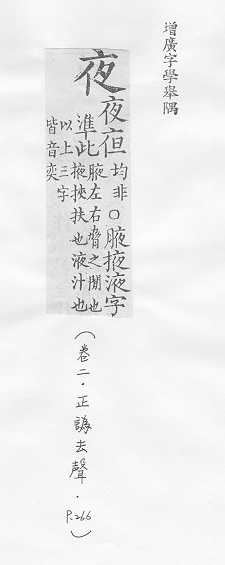 增廣字學舉隅
夜
夜亱均非○腋掖液字
準此腋左右脅之間也
掖挾扶也液汁也
以上三字
皆音奕
(卷二．正譌去聲．P.266)